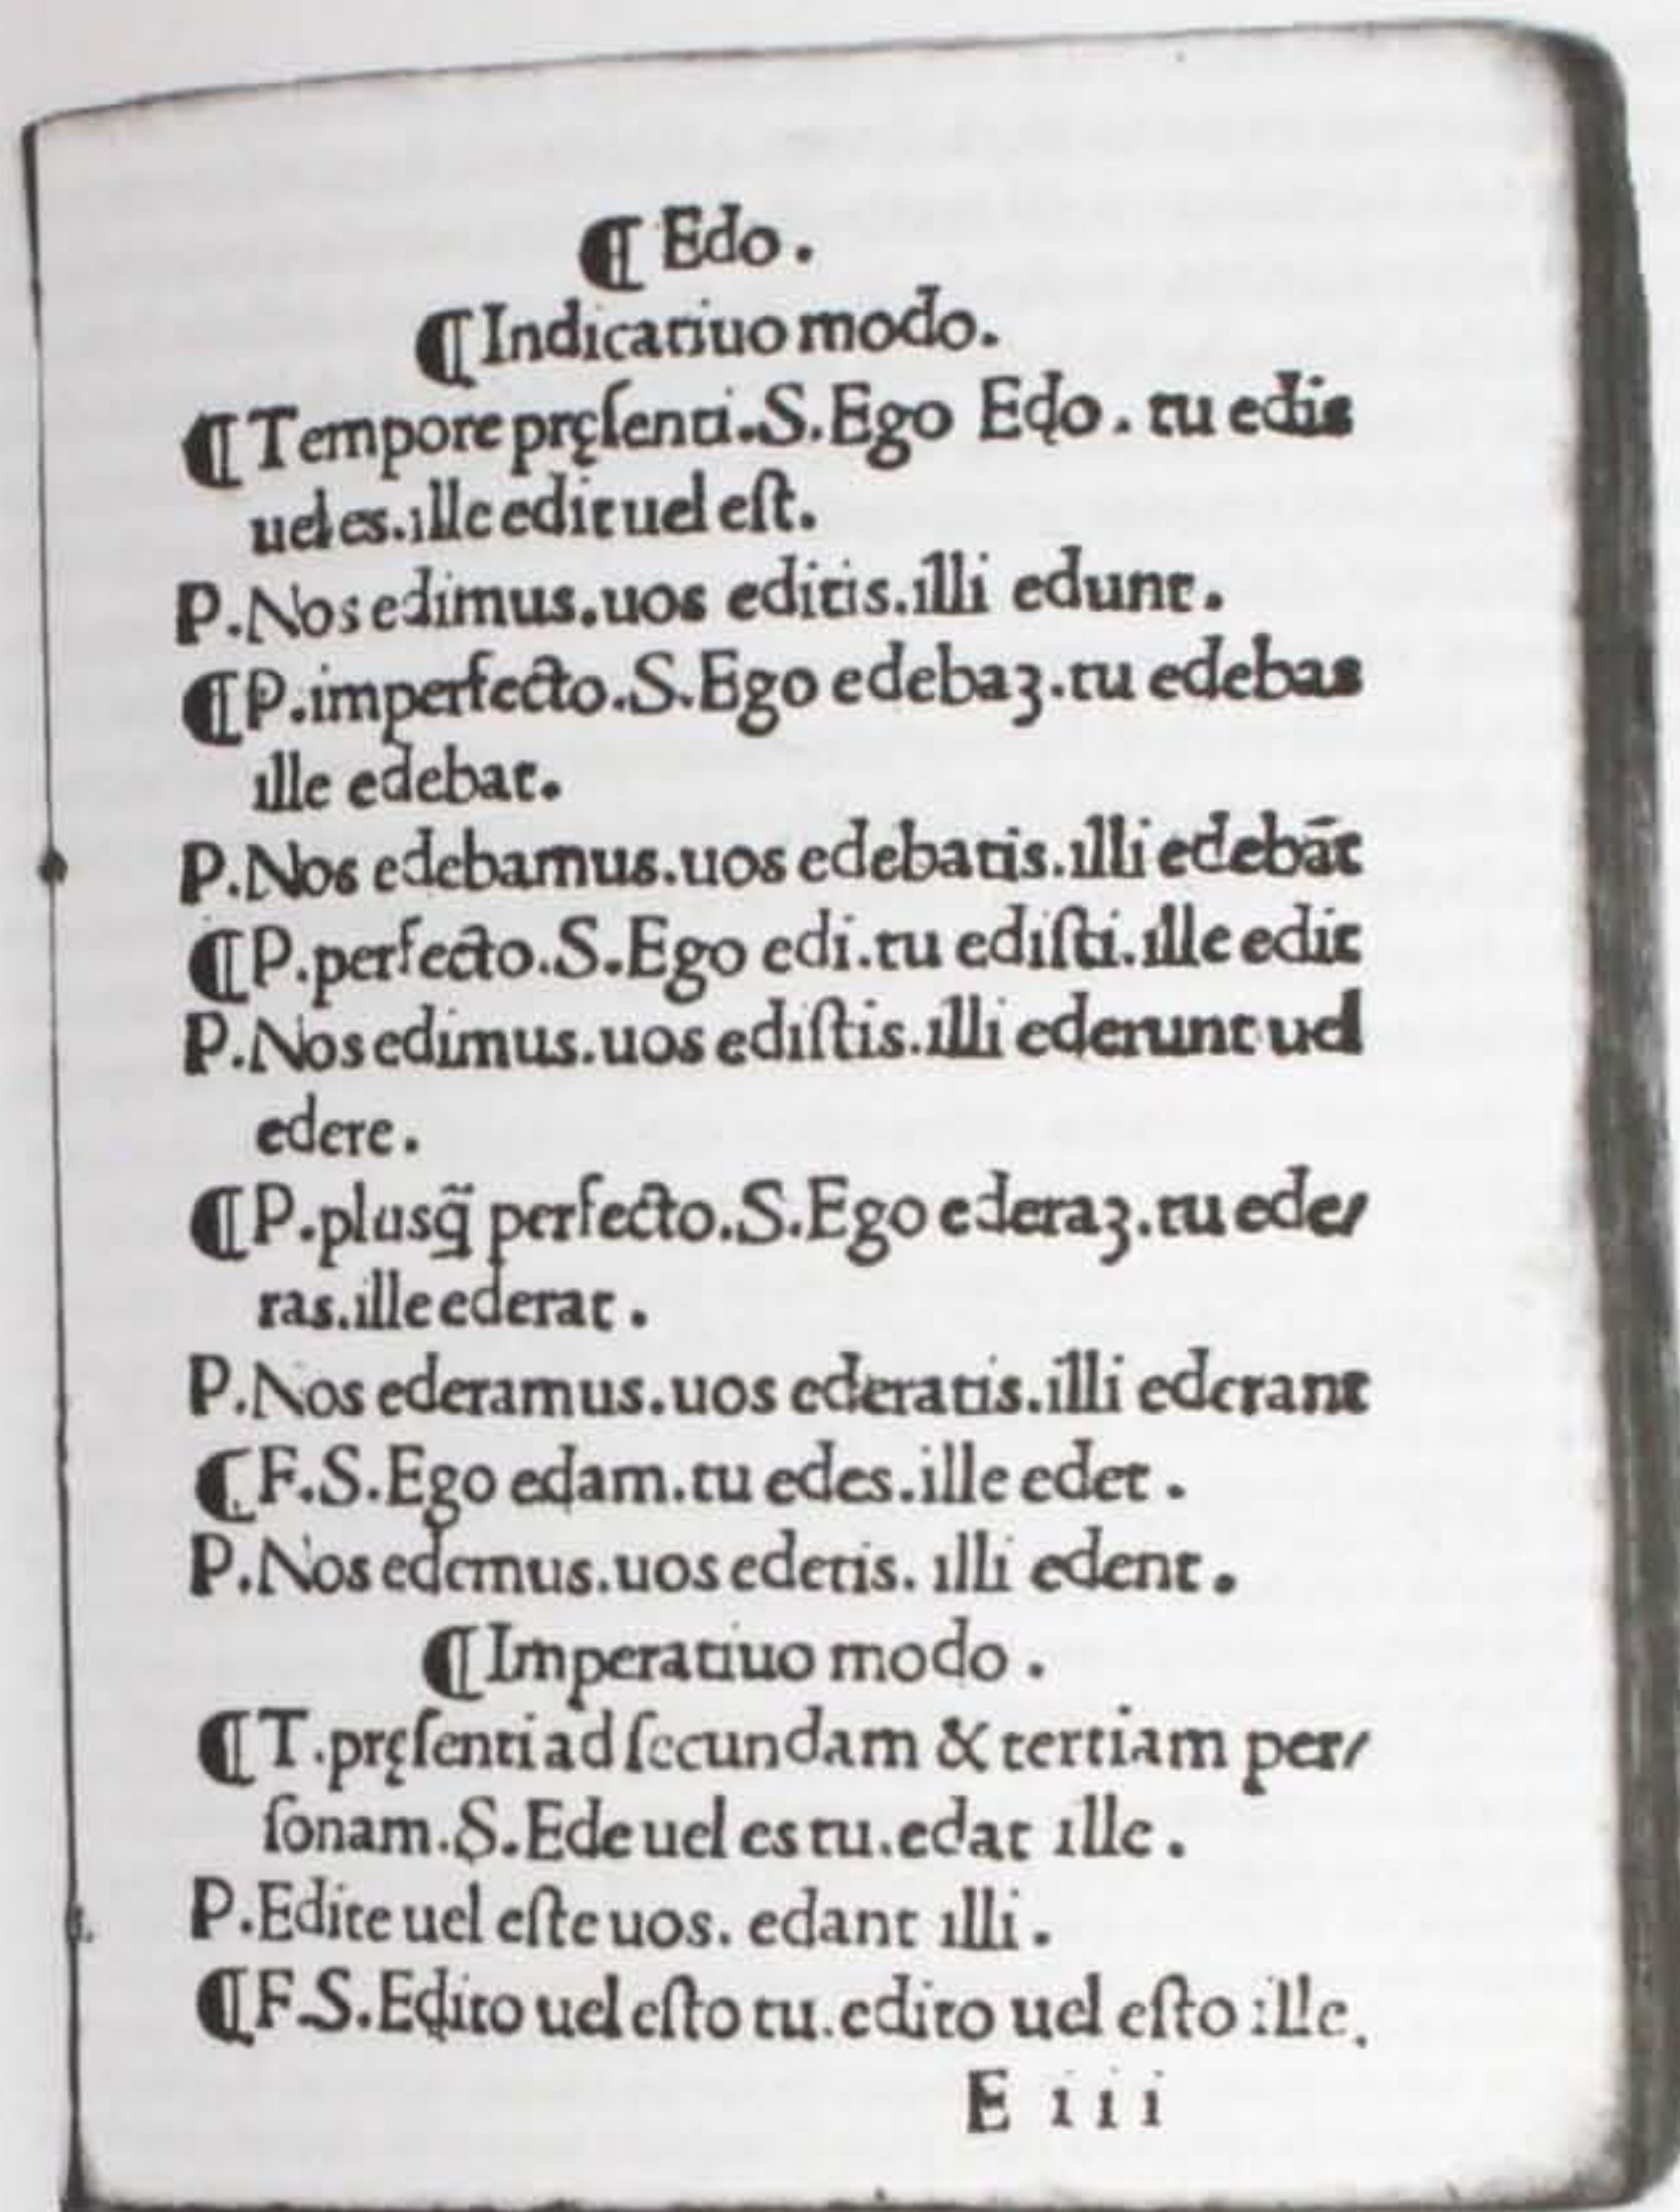 ¶ Edo .
¶ Indicatiuo modo.
¶ Tempore pręſenti.S.Ego Edo . tu edis
uel es.ille edit uel eſt.
P.Nos edimus.uos editis.illi edunt.
¶ P.imperfecto.S.Ego edebaꝫ.tu edebas
ille edebat.
P.Nos edebamus.uos edebatis.illi edebāt
¶ P.perfecto.S.Ego edi.tu ediſti.ille edit
P.Nos edimus.uos ediſtis.illi ederunt uel
edere.
¶ P.plusq̃ perfecto.S.Ego ederaꝫ.tu ede/
ras.ille ederat .
P.Nos ederamus.uos ederatis.illi ederant
¶ F.S.Ego edam.tu edes.ille edet .
P.Nos edemus.uos edetis. illi edent .
¶ Imperatiuo modo .
¶ T.pręſenti ad ſecundam & tertiam per/
ſonam.S.Ede uel es tu.edat ille .
P.Edite uel eſte uos. edant illi .
¶ F.S.Edito uel eſto tu.edito uel eſto ille.
E i i i